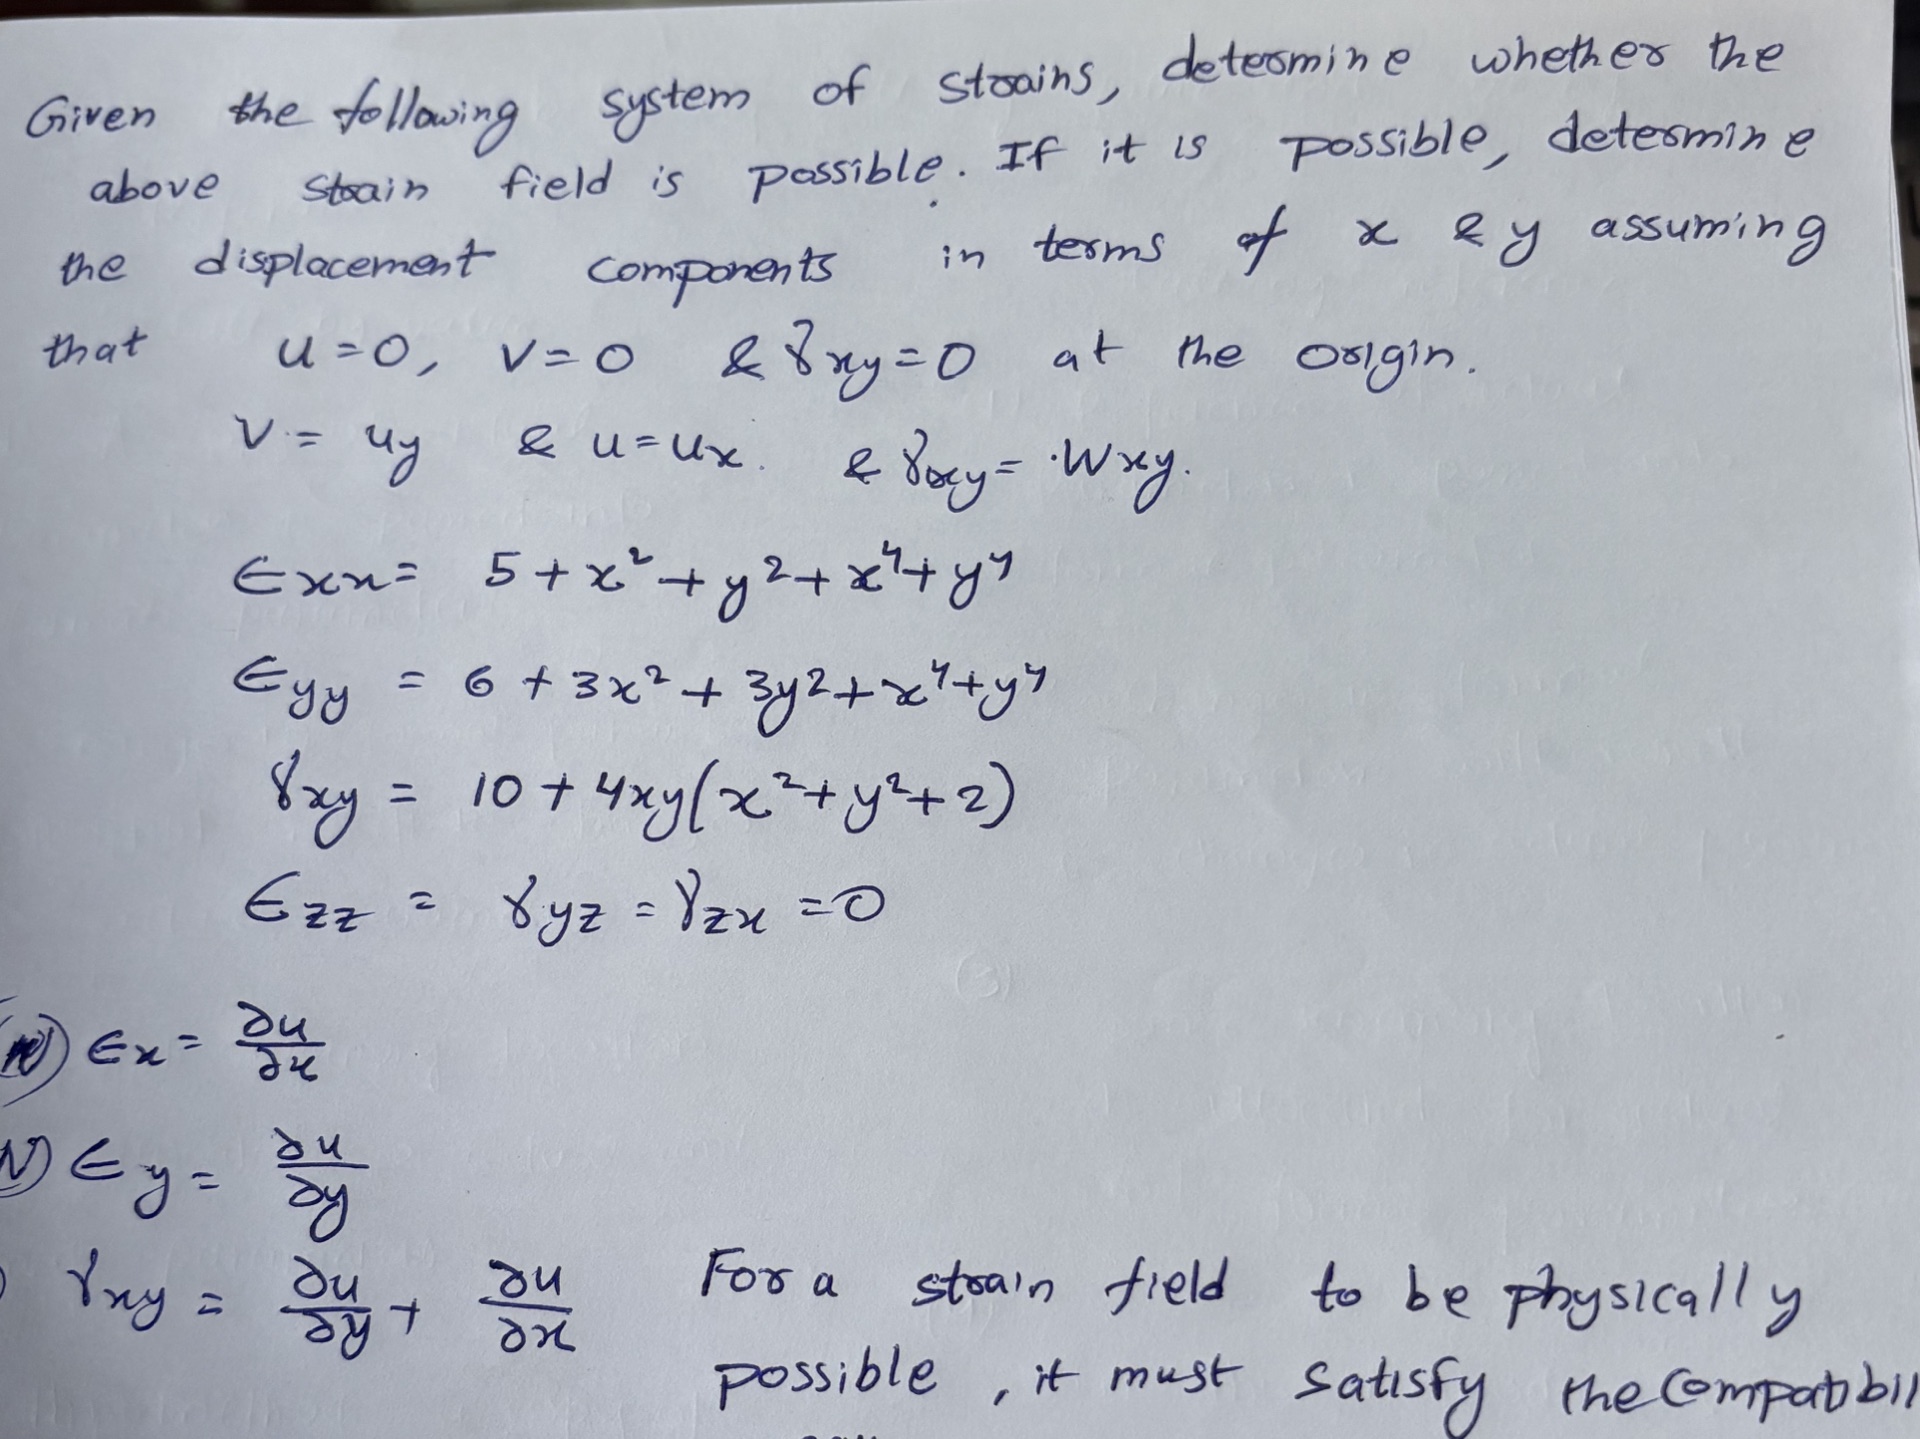 Given the following system of strains, determine whether the
above strain field is possible. If it is possible, determine
the displacement components in terms of x & y assuming
that u=0, v=0 & γxy=0 at the origin.
V = uy & u=ux. & γxy= Wxy.
∈xx= 5+x²+y²+x⁴+y⁴
∈yy = 6+3x²+3y²+x⁴+y⁴
γxy = 10+4xy(x²+y²+2)
∈zz = γyz = γzx =0
∈x= ∂u/∂x
∈y= ∂u/∂y
γxy = ∂u/∂y + ∂u/∂x For a strain field to be physically
possible, it must satisfy the Compatibil